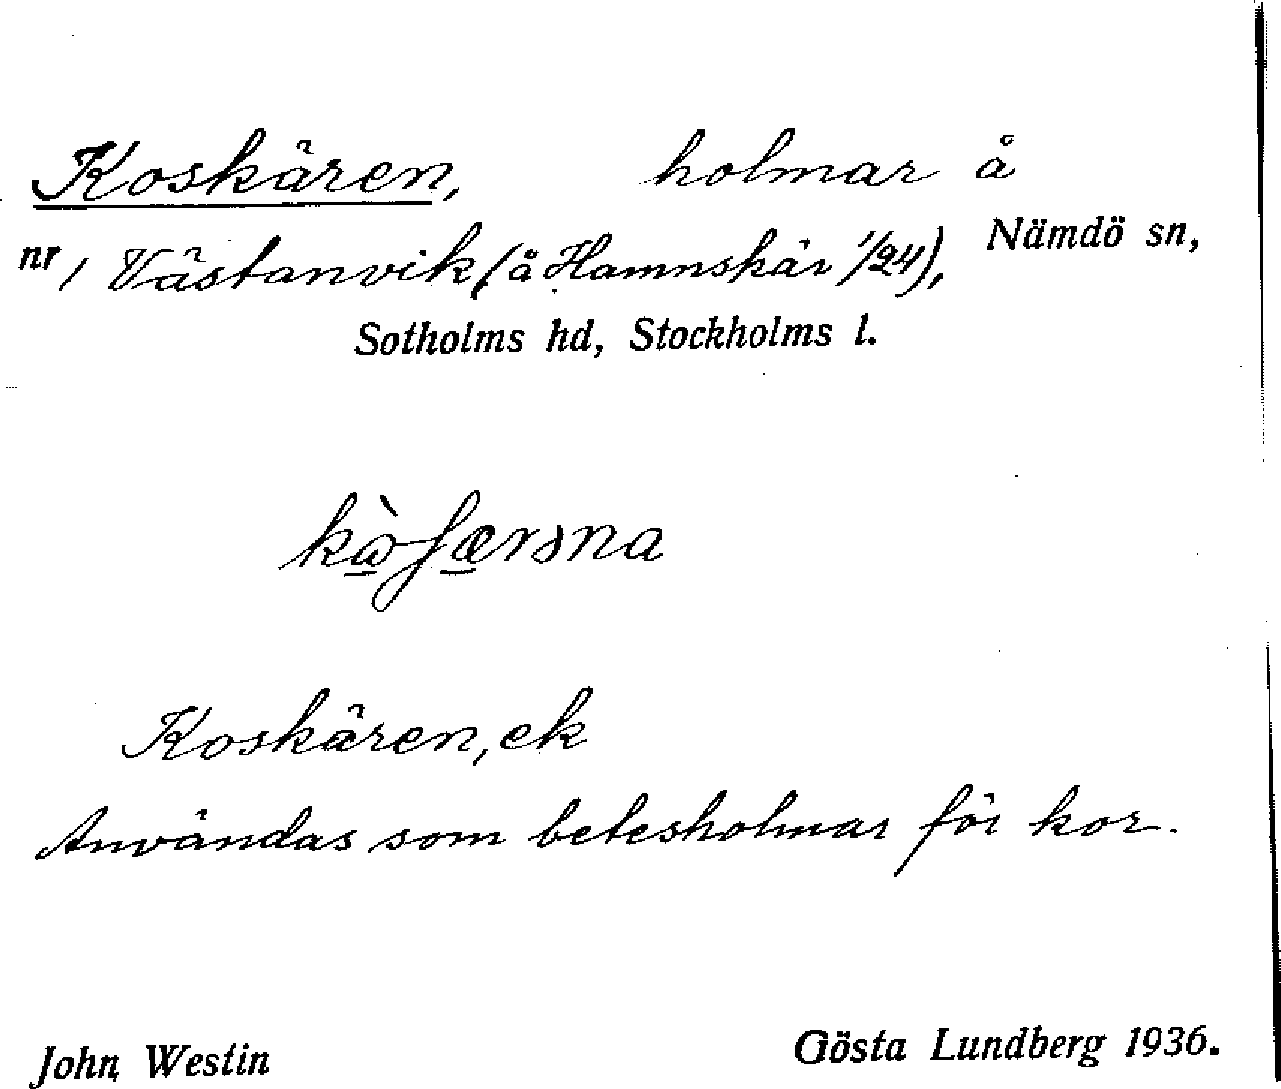 Koskären, holmar å
nr 1 Västanvik (å Hamnskär 1/24), Nämdö sn,
Sotholms hd, Stockholms l.
Koskären, ek
Användas som betesholmar för kor.
John Westin Gösta Lundberg 1936.